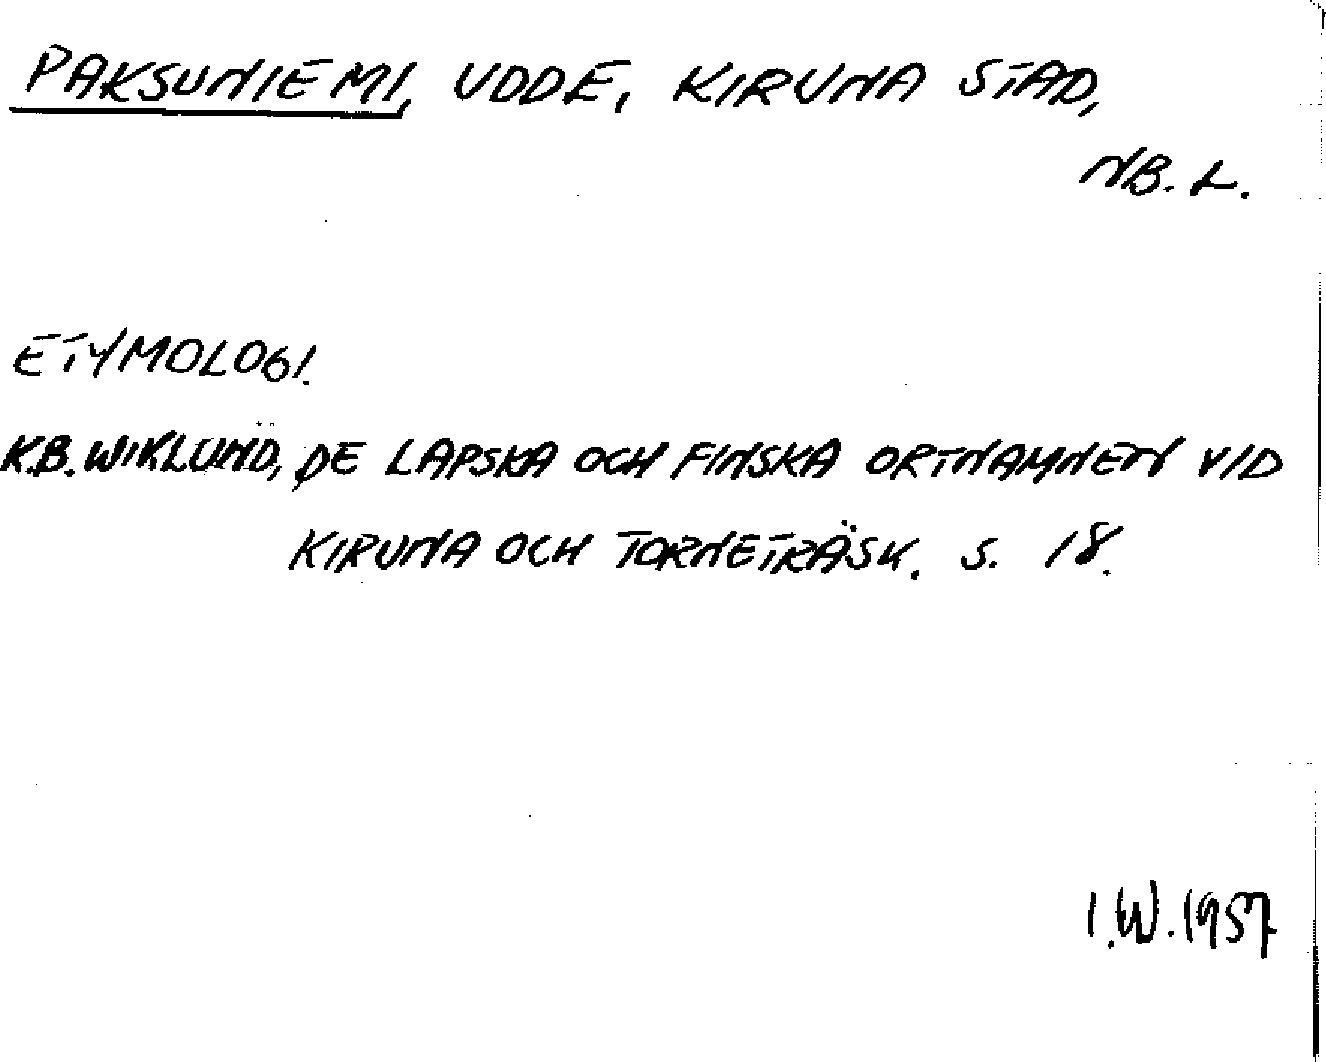 PAKSUNIEMI, UDDE, KIRUNA STAD,
NB. L.
ETYMOLOGI.
K.B. WIKLUND, DE LAPSKA OCH FINSKA ORTNAMNEN VID
KIRUNA OCH TORNETRÄSK. S. 18.
I.W. 1957